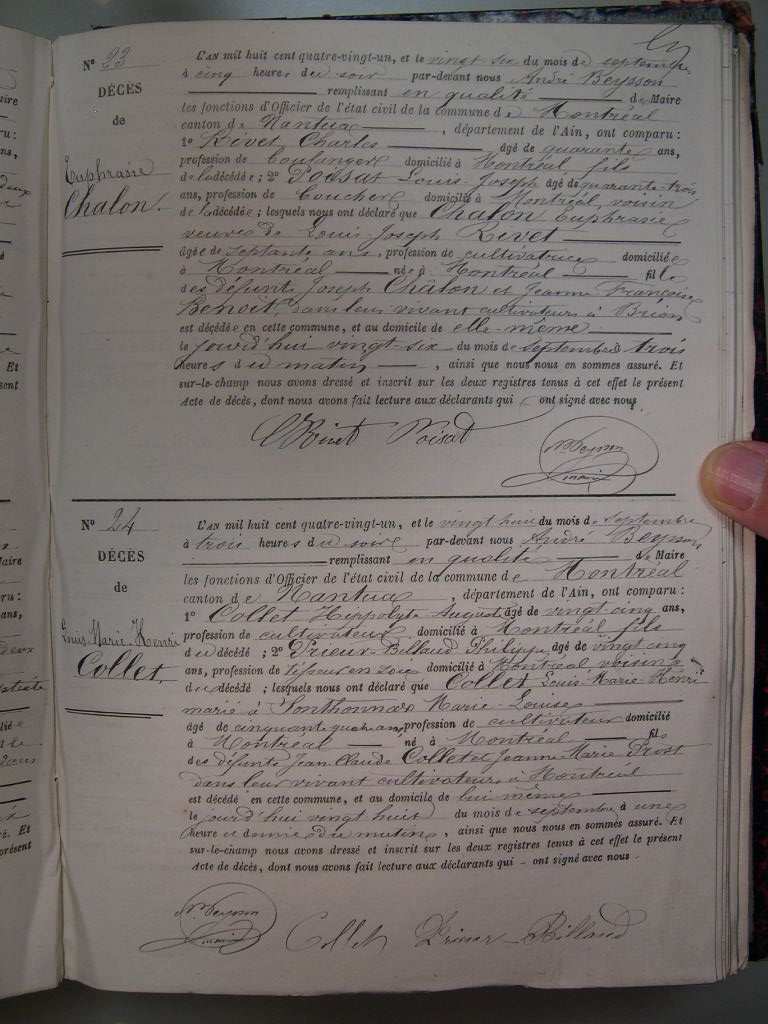 N° 23
DÉCÈS
de
Euphrasie
Chalon
L'AN mil huit cent quatre-vingt-un, et le vingt six du mois de septembre
à cinq heures du soir par-devant nous André Beysson
remplissant en qualité de Maire
les fonctions d'Officier de l'état civil de la commune de Montréal
canton de Nantua, département de l'Ain, ont comparu :
1° Rivet Charles âgé de quarante ans,
profession de boulanger domicilié à Montréal fils
de la décédée ; 2° Poisat Louis-Joseph âgé de quarante-trois
ans, profession de domicilié à Montréal, voisin
de la décédée ; lesquels nous ont déclaré que Chalon Euphrasie
veuve de Louis-Joseph Rivet
âgée de septante ans, profession de cultivatrice domiciliée
à Montréal née à Montréal fille
des défunts Joseph Châlon et Jeanne Françoise
Benoit, dans leur vivant cultivateurs à
est décédée en cette commune, et au domicile de elle-même
le jourd'hui vingt-six du mois de septembre à trois
heures du matin, ainsi que nous nous en sommes assuré. Et
sur-le-champ nous avons dressé et inscrit sur les deux registres tenus à cet effet le présent
Acte de décès, dont nous avons fait lecture aux déclarants qui ont signé avec nous.
Rivet Poisat
Beysson
maire
N° 24
DÉCÈS
de
Louis-Marie-Henri
Collet
L'AN mil huit cent quatre-vingt-un, et le vingt huit du mois de septembre
à trois heures du soir par-devant nous André Beysson
remplissant en qualité de Maire
les fonctions d'Officier de l'état civil de la commune de Montréal
canton de Nantua, département de l'Ain, ont comparu :
1° Collet Hippolyte Auguste âgé de vingt cinq ans,
profession de cultivateur domicilié à Montréal fils
du décédé ; 2° Prieur-Billaud Philippe âgé de vingt cinq
ans, profession de tisseur en soie domicilié à Montréal voisin
du décédé ; lesquels nous ont déclaré que Collet Louis Marie Henri
marié à Sonthonnax Marie-Louise
âgé de cinquante quatre ans profession de cultivateur domicilié
à Montréal né à Montréal fils
des défunts Jean-Claude Collet et Jeanne Marie Prost
dans leur vivant cultivateurs à Montréal
est décédé en cette commune, et au domicile de lui même
le jourd'hui vingt huit du mois de septembre à une
heure et demie du matin, ainsi que nous nous en sommes assuré. Et
sur-le-champ nous avons dressé et inscrit sur les deux registres tenus à cet effet le présent
Acte de décès, dont nous avons fait lecture aux déclarants qui ont signé avec nous.
Beysson
maire
Collet Prieur-Billaud